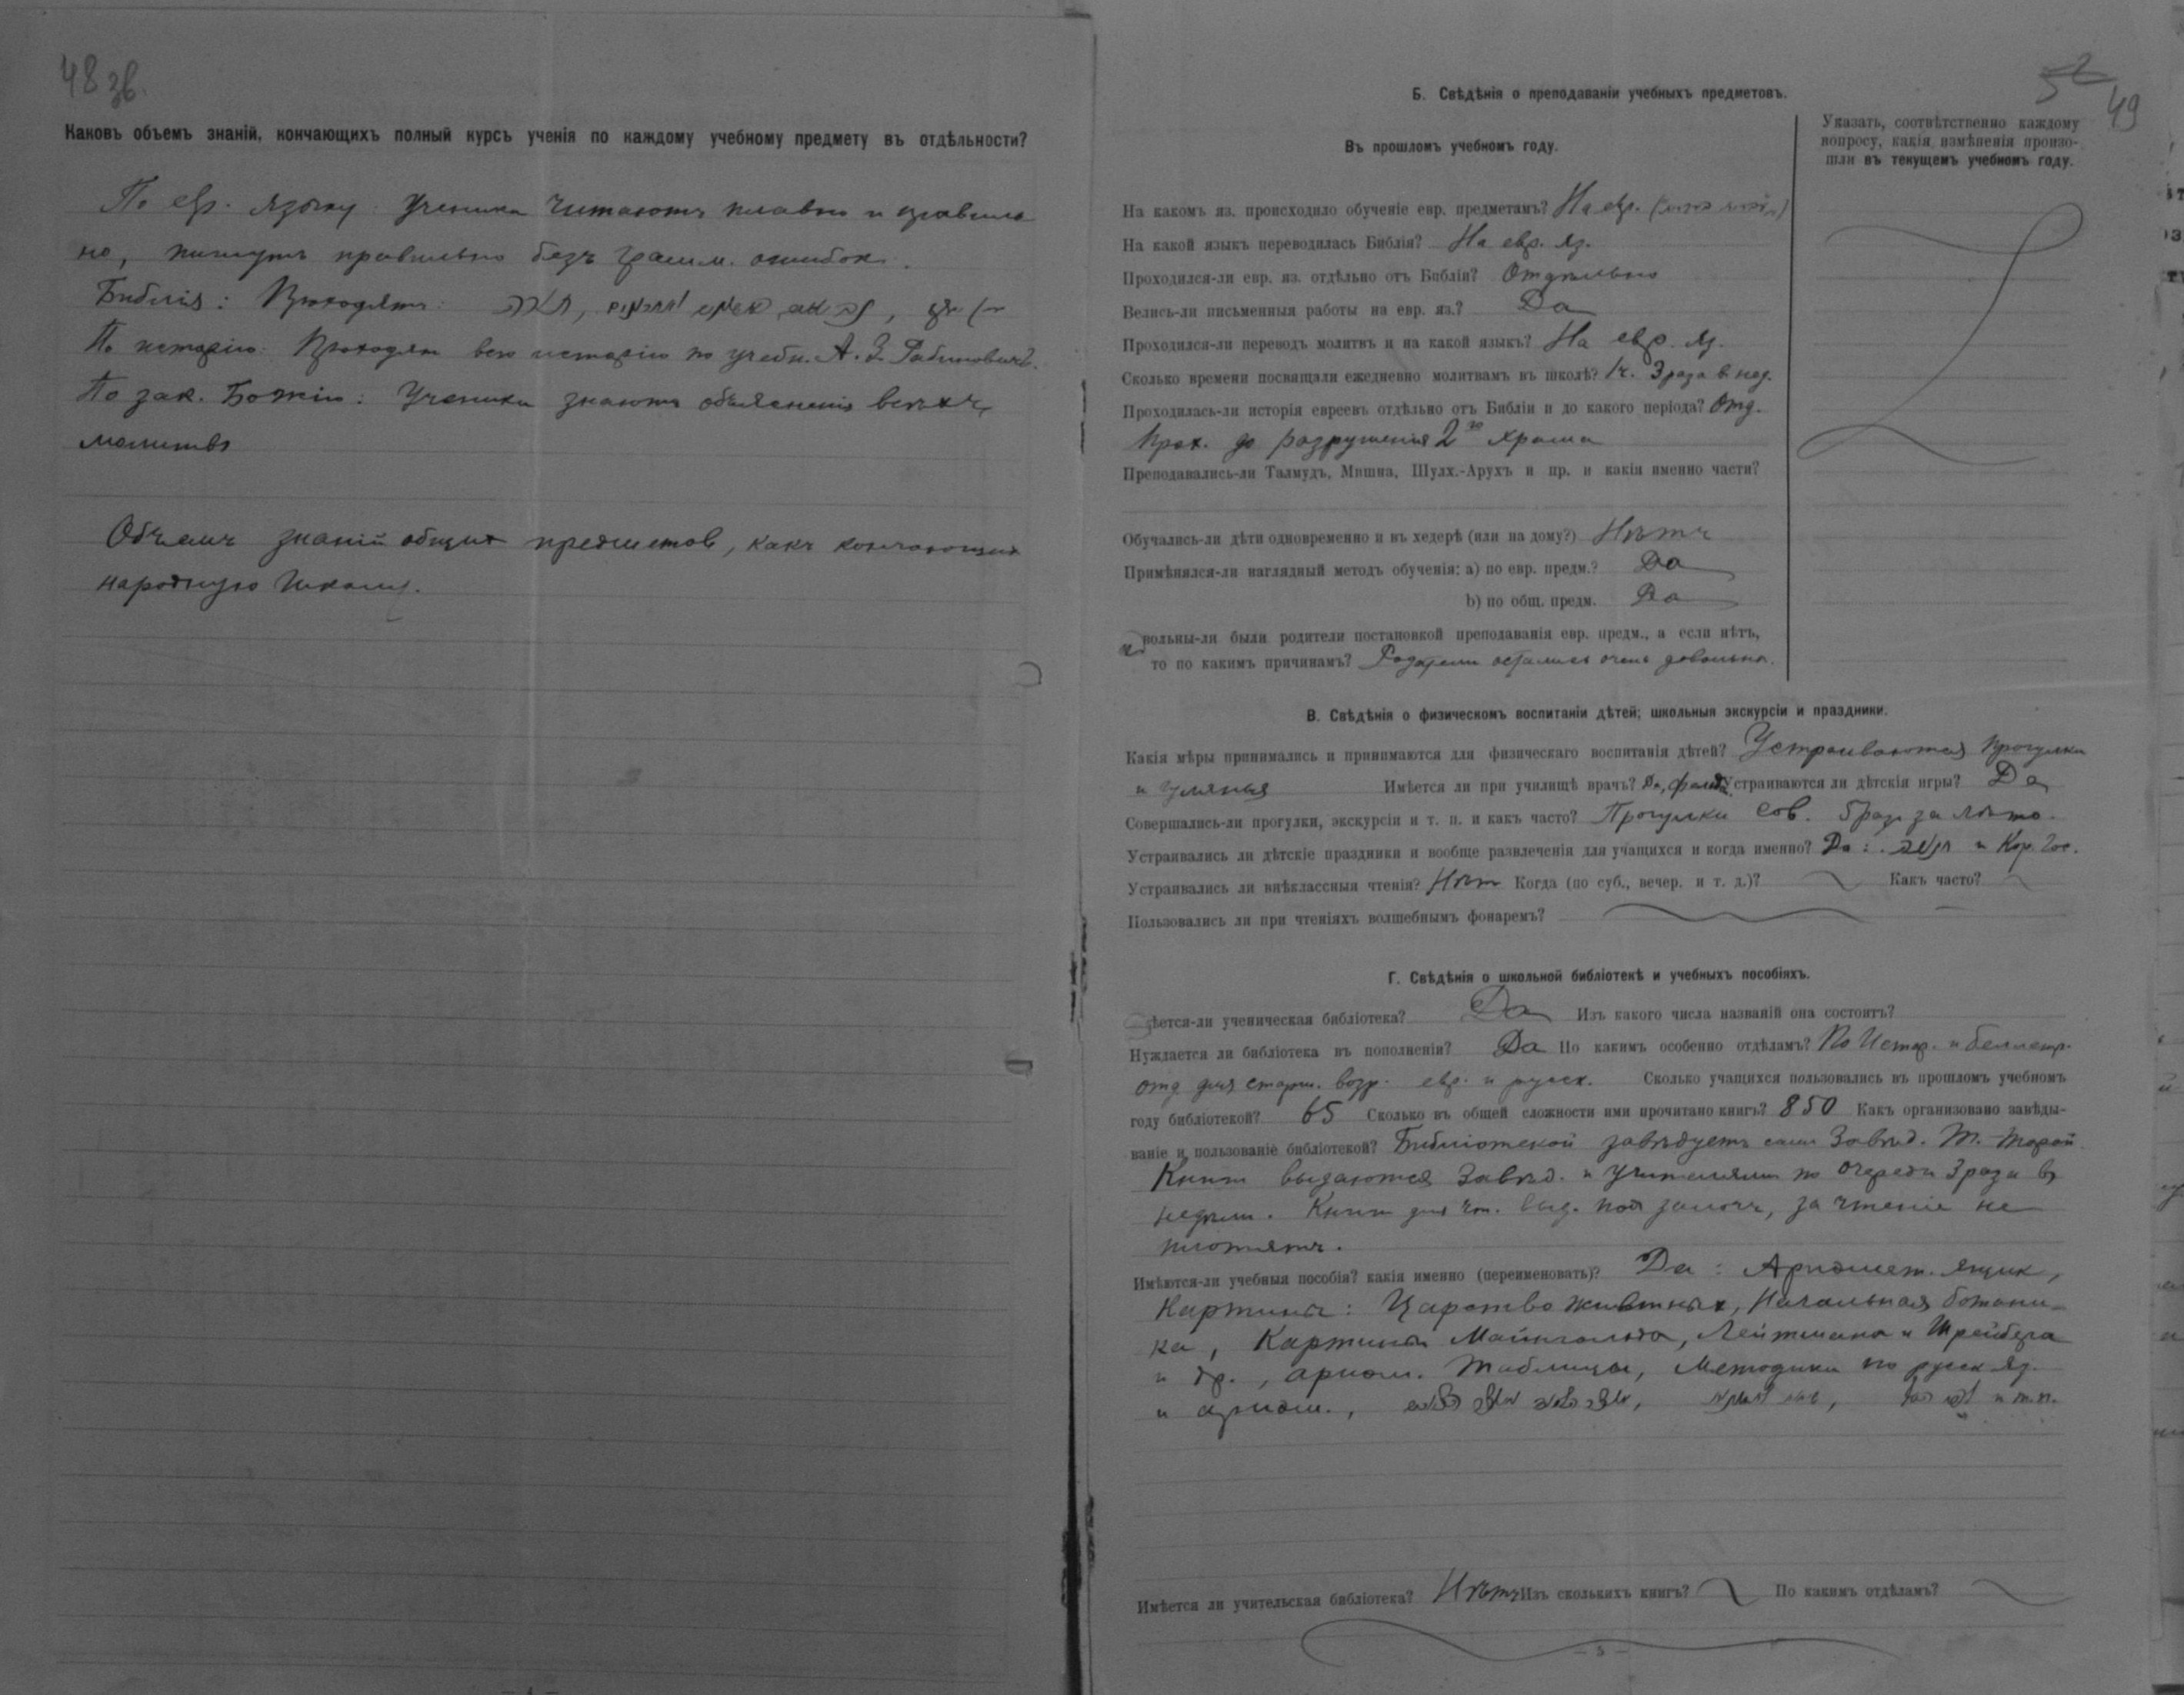 48 зв.
Каковъ объемъ знаній, кончающихъ полный курсъ ученія по каждому учебному предмету въ отдѣльности?
По евр. языку: Ученики читаютъ плавно и правиль
но, пишутъ правильно безъ грамм. ошибокъ.
Библія: Проходятъ:
По исторіи: Проходят всю исторію по учебн. А. З. Рабиновича.
По зак. Божію: Ученики знаютъ объясненія всѣхъ
молитвъ
Объемъ знаній общих предметов, какъ кончающих
народную школу.
52
49
Б. Свѣдѣнія о преподаваніи учебныхъ предметовъ.
Въ прошломъ учебномъ году.
Указать, соотвѣтственно каждому
вопросу, какія измѣненія произо-
шли въ текущемъ учебномъ году.
На какомъ яз. происходило обученіе евр. предметамъ? На евр.
На какой языкъ переводилась Библія? На евр. яз.
Проходился-ли евр. яз. отдѣльно отъ Библіи? Отдѣльно
Велись-ли письменныя работы на евр. яз.? Да
Проходился-ли переводъ молитвъ и на какой языкъ? На евр. яз.
Сколько времени посвящали ежедневно молитвамъ въ школѣ? 1 ч. 3 раза в нед.
Проходилась-ли исторія евреевъ отдѣльно отъ Библіи и до какого періода? Отд.
Прох. до разрушенія 2го храма
Преподавались-ли Талмудъ, Мишна, Шулх.-Арухъ и пр. и какія именно части?
Обучались-ли дѣти одновременно и въ хедерѣ (или на дому?) Нѣтъ
Примѣнялся-ли наглядный методъ обученія: а) по евр. предм.? Да
b) по общ. предм. Да
вольны-ли были родители постановкой преподаванія евр. предм., а если нѣтъ,
то по какимъ причинамъ? Родители остались очень довольны.
В. Свѣдѣнія о физическомъ воспитаніи дѣтей; школьныя экскурсіи и праздники.
Какія мѣры принимались и принимаются для физическаго воспитанія дѣтей? Устраиваются прогулки
и гулянья Имѣется ли при училищѣ врачъ? Да, Устраиваются ли дѣтскія игры? Да
Совершались-ли прогулки, экскурсіи и т. п. и какъ часто? Прогулки сов. 5 раз за лѣто.
Устраивались ли дѣтскіе праздники и вообще развлеченія для учащихся и когда именно? Да:
Устраивались ли внѣклассныя чтенія? Нѣт Когда (по суб., вечер. и т. д.)? Какъ часто?
Пользовались ли при чтеніяхъ волшебнымъ фонаремъ?
Г. Свѣдѣнія о школьной библіотекѣ и учебныхъ пособіяхъ.
ѣется-ли ученическая библіотека? Да Изъ какого числа названій она состоитъ?
Нуждается ли библіотека въ пополненіи? Да По какимъ особенно отдѣламъ? По Истор. и беллетр.
отд для старш. возр. евр. и русск. Сколько учащихся пользовались въ прошломъ учебномъ
году библіотекой? 65 Сколько въ общей сложности ими прочитано книгъ? 850 Какъ организовано завѣды-
ваніе и пользованіе библіотекой? Библіотекой завѣдуетъ сам Завѣд. Т. Торой.
Книги выдаются Завѣд. и учителями по очереди 3 раза въ
недѣлю. Книги для чт. выд. под залогъ, за чтеніе не
платятъ.
Имѣются-ли учебныя пособія? какія именно (переименовать)? Да: Ариөмет. ящик,
Картины: Царство животных, Начальная ботани-
ка, Картины Майнгольда, Лейтмана и Шрейбера
и др., ариөм. таблицы, Методики по русск яз.
и ариөм., и т.п.
Имѣется ли учительская библіотека? Нѣтъ Изъ сколькихъ книгъ? По какимъ отдѣламъ?
— 5 —